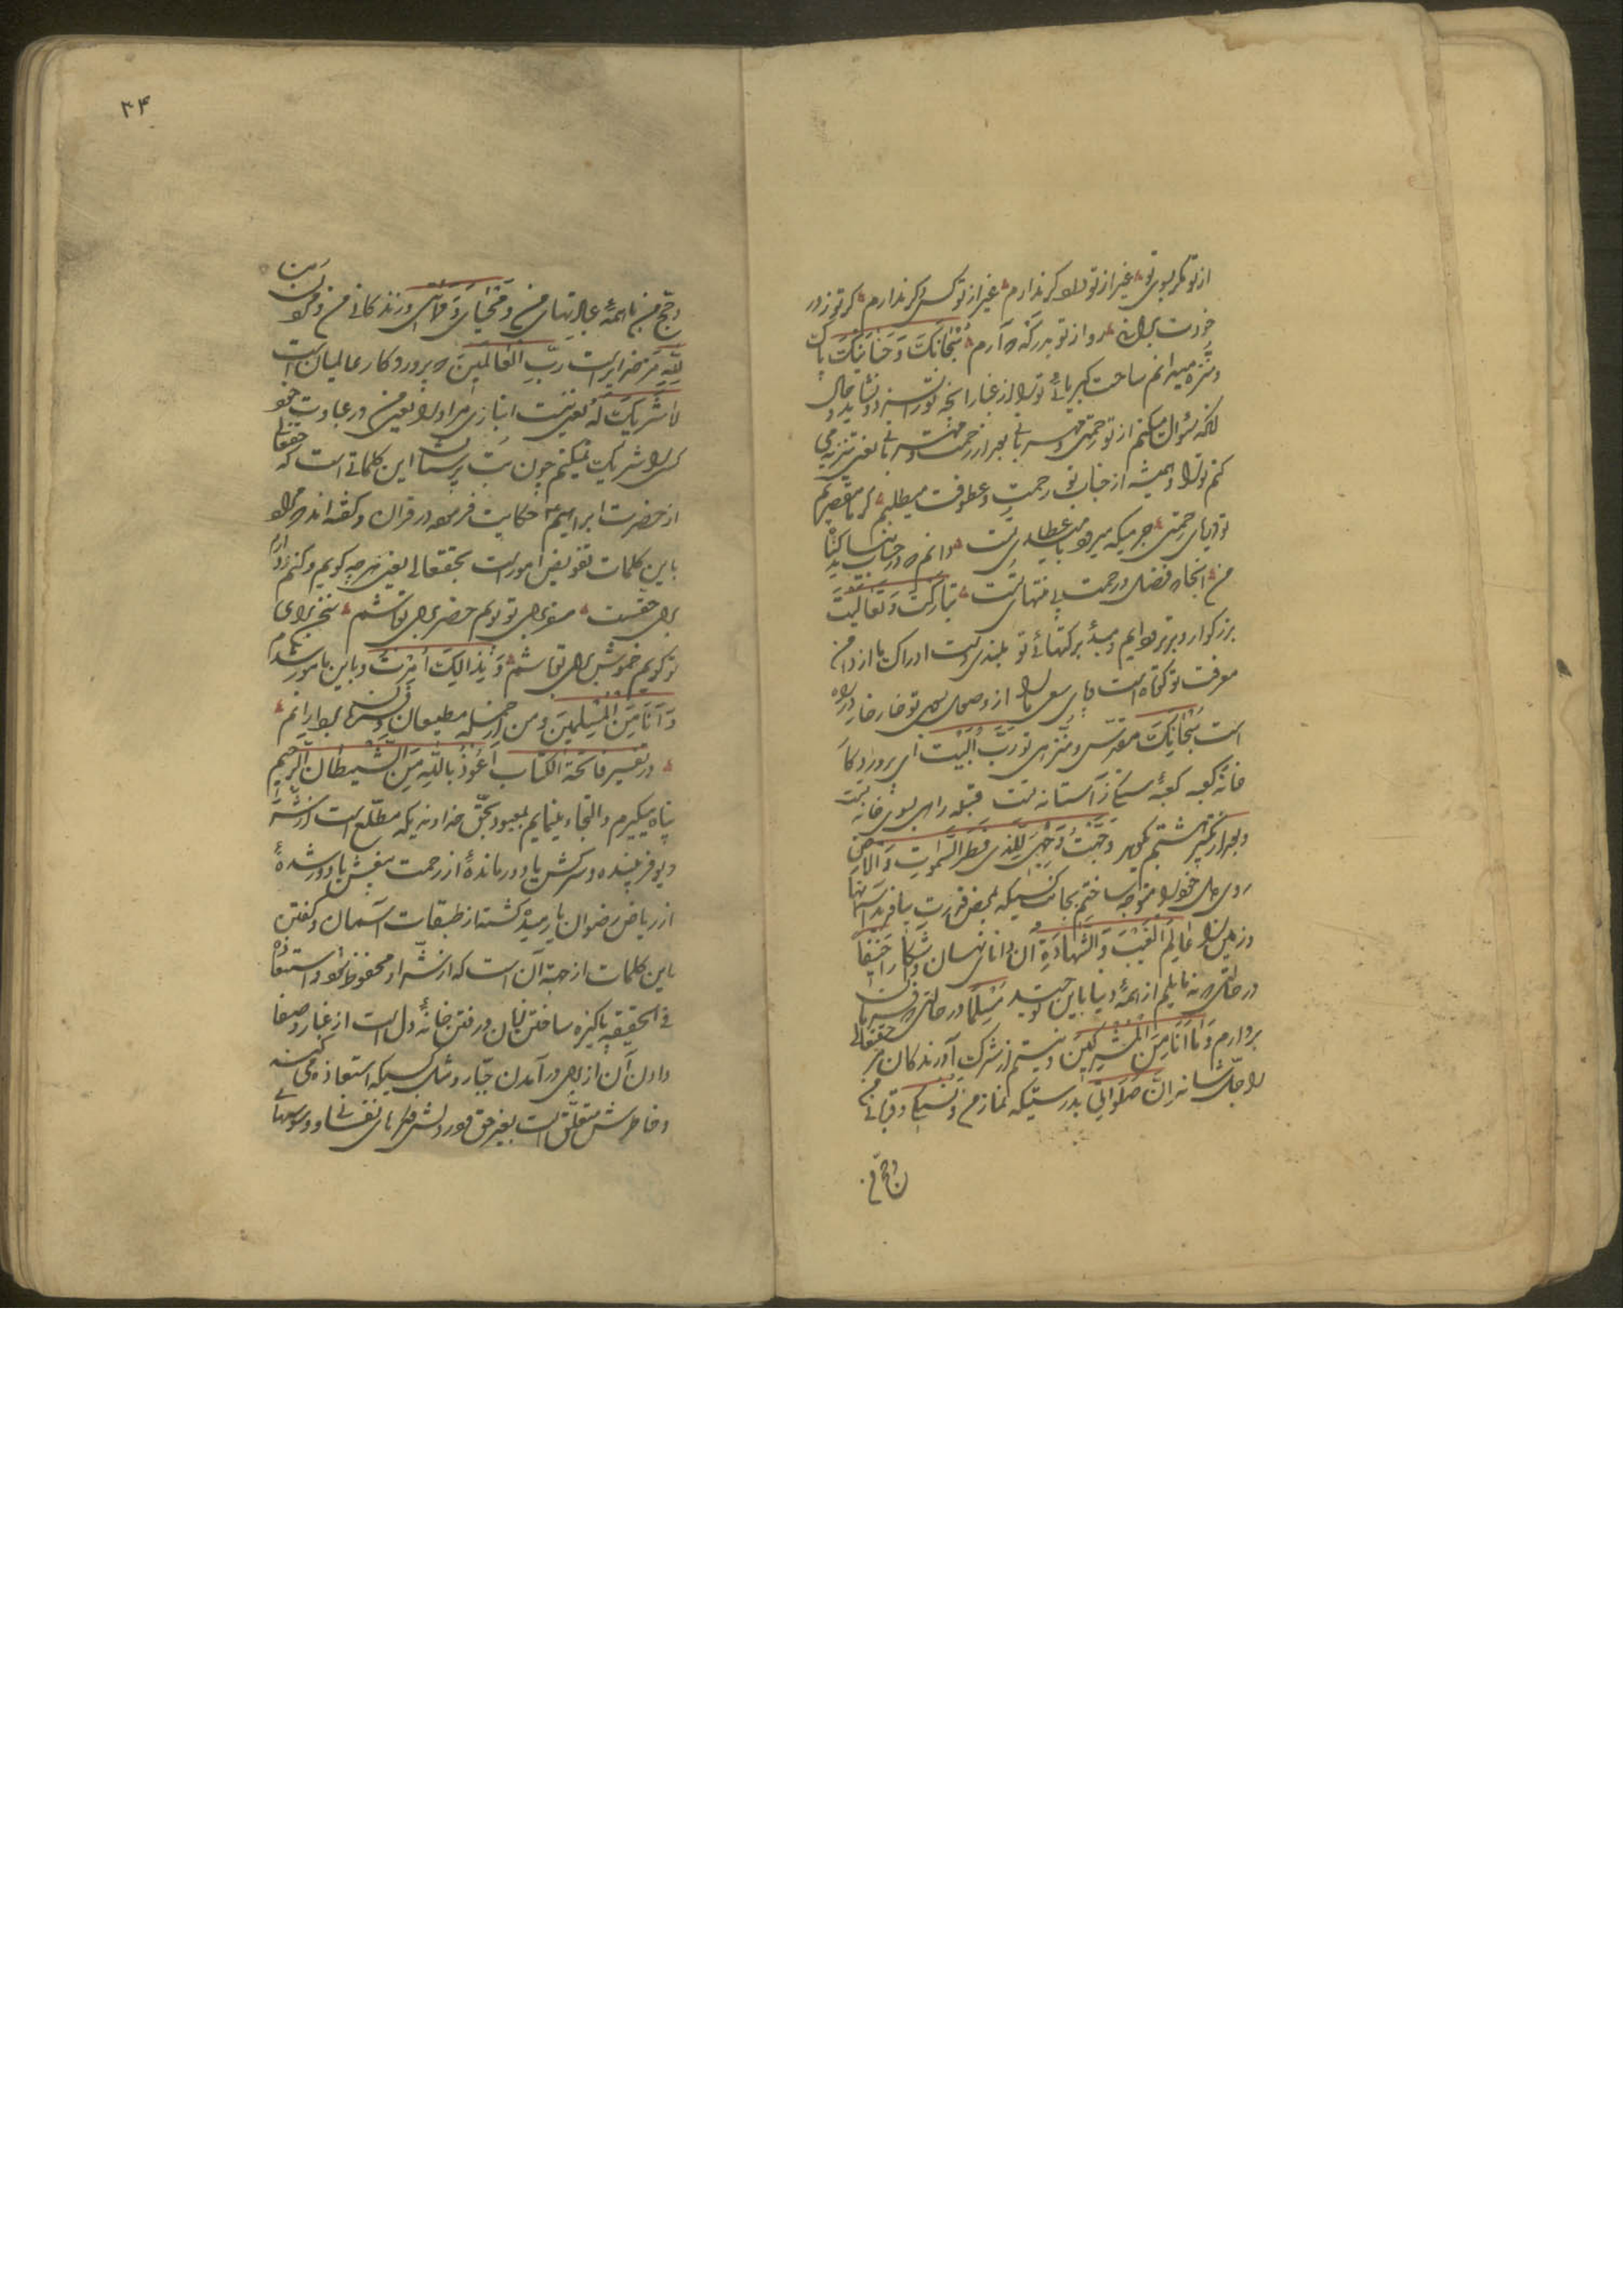 از تو مگر بسوی تو غیر از تو دلاو یز ندارم غیر از تو کس دگر ندارم گر تو ز در
خودت برانی رو از تو بدر که آرم سُبْحَانَكَ وَ حَنَانَیْكَ پاک
و منزه میدانم ساحت کبریائی تو را از غبار آنچه تو را نسزد و نشاید و حال
آنکه سؤال میکنم از تو رحمتی و مهربانی بعد از رحمت و مهربانی یعنی تنزیه می
کنم تو را و همیشه از جناب تو رحمت و عطوفت میطلبم گر ما مقصریم
تو دریای رحمتی جرمیکه میرود با عطای تست دانم که در حساب نیاید گناه
من آنجا که فضل و رحمت بی منتهای تست تَبَارَکْتَ وَ تَعَالَیْتَ
بزرگوار و برتر دایم و مبدأ برکتهائی تو بلندی و دست ادراک ما از دامن
معرفت تو کوتاه است و پای سعی ما را از وصول بسوی تو خار خار در راه
است سُبْحَانَكَ مقدس و منزهی تو رَبَّ الْبَیْتِ ای پروردگار
خانه کعبه کعبه سنگی ز آستانه تست قبله راهی بسوی خانه تست
و بعد از تکبیر هشتم بگوید وَجَّهْتُ وَجْهِیَ لِلَّذِی فَطَرَ السَّمٰوَاتِ وَ الْاَرْضَ
روی دل خود را متوجه ساختم بجانب کسیکه بمحض قدرت بیافرید آسمانها
و زمین را عَالِمِ الْغَیْبِ وَ الشَّهَادَةِ آن دانای نهان و آشکارا حَنِیفًا
در حالتی که مایلم از همه دینها باین توحید مُسْلِمًا در حالتی که فرمان
بردارم وَ مَا اَنَا مِنَ الْمُشْرِکِینَ و نیستم از شرک آورندگان مر حقتعالی
را جل شانه اِنَّ صَلَوٰتِی بدرستیکه نماز من وَ نُسُکِی و قربانی من
و حج من
۴۴
و حج من با همه عبادتهای من وَ مَحْیَایَ وَ مَمَاتِی و زندگانی من و مردن من
لِلّٰهِ مر خدایراست رَبِّ الْعَالَمِینَ که پروردگار عالمیان است
لَا شَرِیكَ لَهُ یعنی نیست انبازی مر او را یعنی من در عبادت خود
کسی را شریک نمیکنم چون بت پرستان این کلماتی است که حقتعالی
از حضرت ابراهیم ع حکایت فرموده در قران و گفته اند که مراد
باین کلمات تفویض امور است بحقتعالی یعنی هر چه گویم و کنم و دارم
برای حقست سفر برای تو پویم حضر برای تو باشم سخن برای
تو گویم خموش برای تو باشم وَ بِذَالِكَ اُمِرْتُ و باین مامور شده ام
وَ اَنَا مِنَ الْمُسْلِمِینَ و من از جمله مطیعان و فرمان بردارانم
در تفسیر فاتحة الکتاب اَعُوذُ بِاللّٰهِ مِنَ الشَّیْطَانِ الرَّجِیمِ
پناه میگیرم و التجاء مینمایم بمعبود بحق خداوندیکه مطلع است از شر
دیو فریبنده و سرکش یا دور مانده از رحمت بیغش یا دور شده
از ریاض رضوان یا رمیده گشته از طبقات آسمان و گفتن
باین کلمات از جهة آن است که از شر او محفوظ بود و استعاذه
فی الحقیقه پاکیزه ساختن زبان و رفتن خانه دل است از غبار و صفا
دادن آن از برای در آمدن جبار و مثل کسیکه استعاذه می کند
و خاطرش متعلق است بغیر حق و در دلش فکرهای نفسانی و وسوسهای